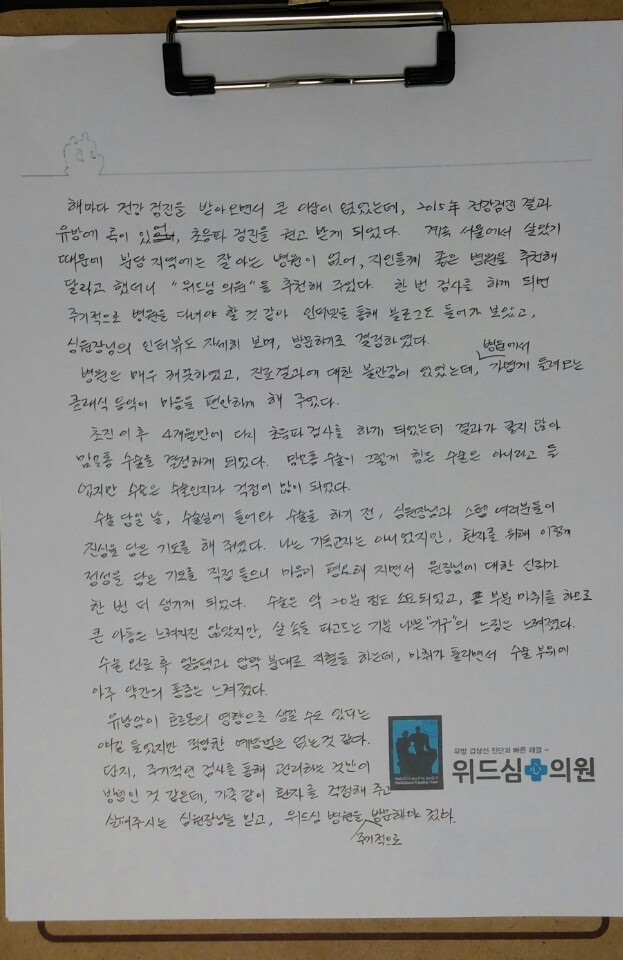 해마다 건강 검진을 받아오면서 큰 이상이 없었는데, 2015年 건강검진 결과
유방에 혹이 있어, 초음파 검진을 권고 받게 되었다. 계속 서울에서 살았기
때문에 분당 지역에는 잘 아는 병원이 없어, 지인들께 좋은 병원을 추천해
달라고 했더니 "위드심 의원"을 추천해 주었다. 한 번 검사를 하게 되면
주기적으로 병원을 다녀야 할 것 같아 인터넷을 통해 블로그도 들어가 보았고,
심원장님의 인터뷰도 자세히 보며, 방문하기로 결정하였다.
병원은 매우 깨끗하였고, 진료결과에 대한 불안감이 있었는데, 병원에서 가볍게 들려오는
클래식 음악이 마음을 편안하게 해 주었다.
초진 이후 4개월만에 다시 초음파 검사를 하게 되었는데 결과가 좋지 않아
맘모톰 수술을 결정하게 되었다. 맘모톰 수술이 그렇게 힘든 수술은 아니라고 들
었지만 수술은 수술인지라 걱정이 많이 되었다.
수술 당일 날, 수술실에 들어와 수술을 하기 전, 심원장님과 스텝 여러분들이
진심을 담은 기도를 해 주었다. 나는 기독교인은 아니었지만, 환자를 위해 이렇게
정성을 담은 기도를 직접 들으니 마음이 평온해 지면서 원장님에 대한 신뢰가
한 번 더 생기게 되었다. 수술은 약 20분 정도 소요되었고, 부분 마취를 하므로
큰 아픔은 느껴지진 않았지만, 살 속을 파고드는 기분 나쁜 "기구"의 느낌은 느껴졌다.
수술 완료 후 얼음팩과 압박 붕대로 지혈을 하는데, 마취가 풀리면서 수술 부위에
아주 약간의 통증은 느껴졌다.
유방암이 호르몬의 영향으로 생길 수도 있다는
얘길 들었지만 적당한 예방법은 없는 것 같다.
단지, 주기적인 검사를 통해 관리하는 것만이
방법인 것 같은데, 가족 같이 환자를 걱정해 주고
살펴주시는 심원장님을 믿고, 위드심 병원을 주기적으로 방문해야 겠다.
유방 갑상선 진단과 빠른 해결~
위드심 心 의원